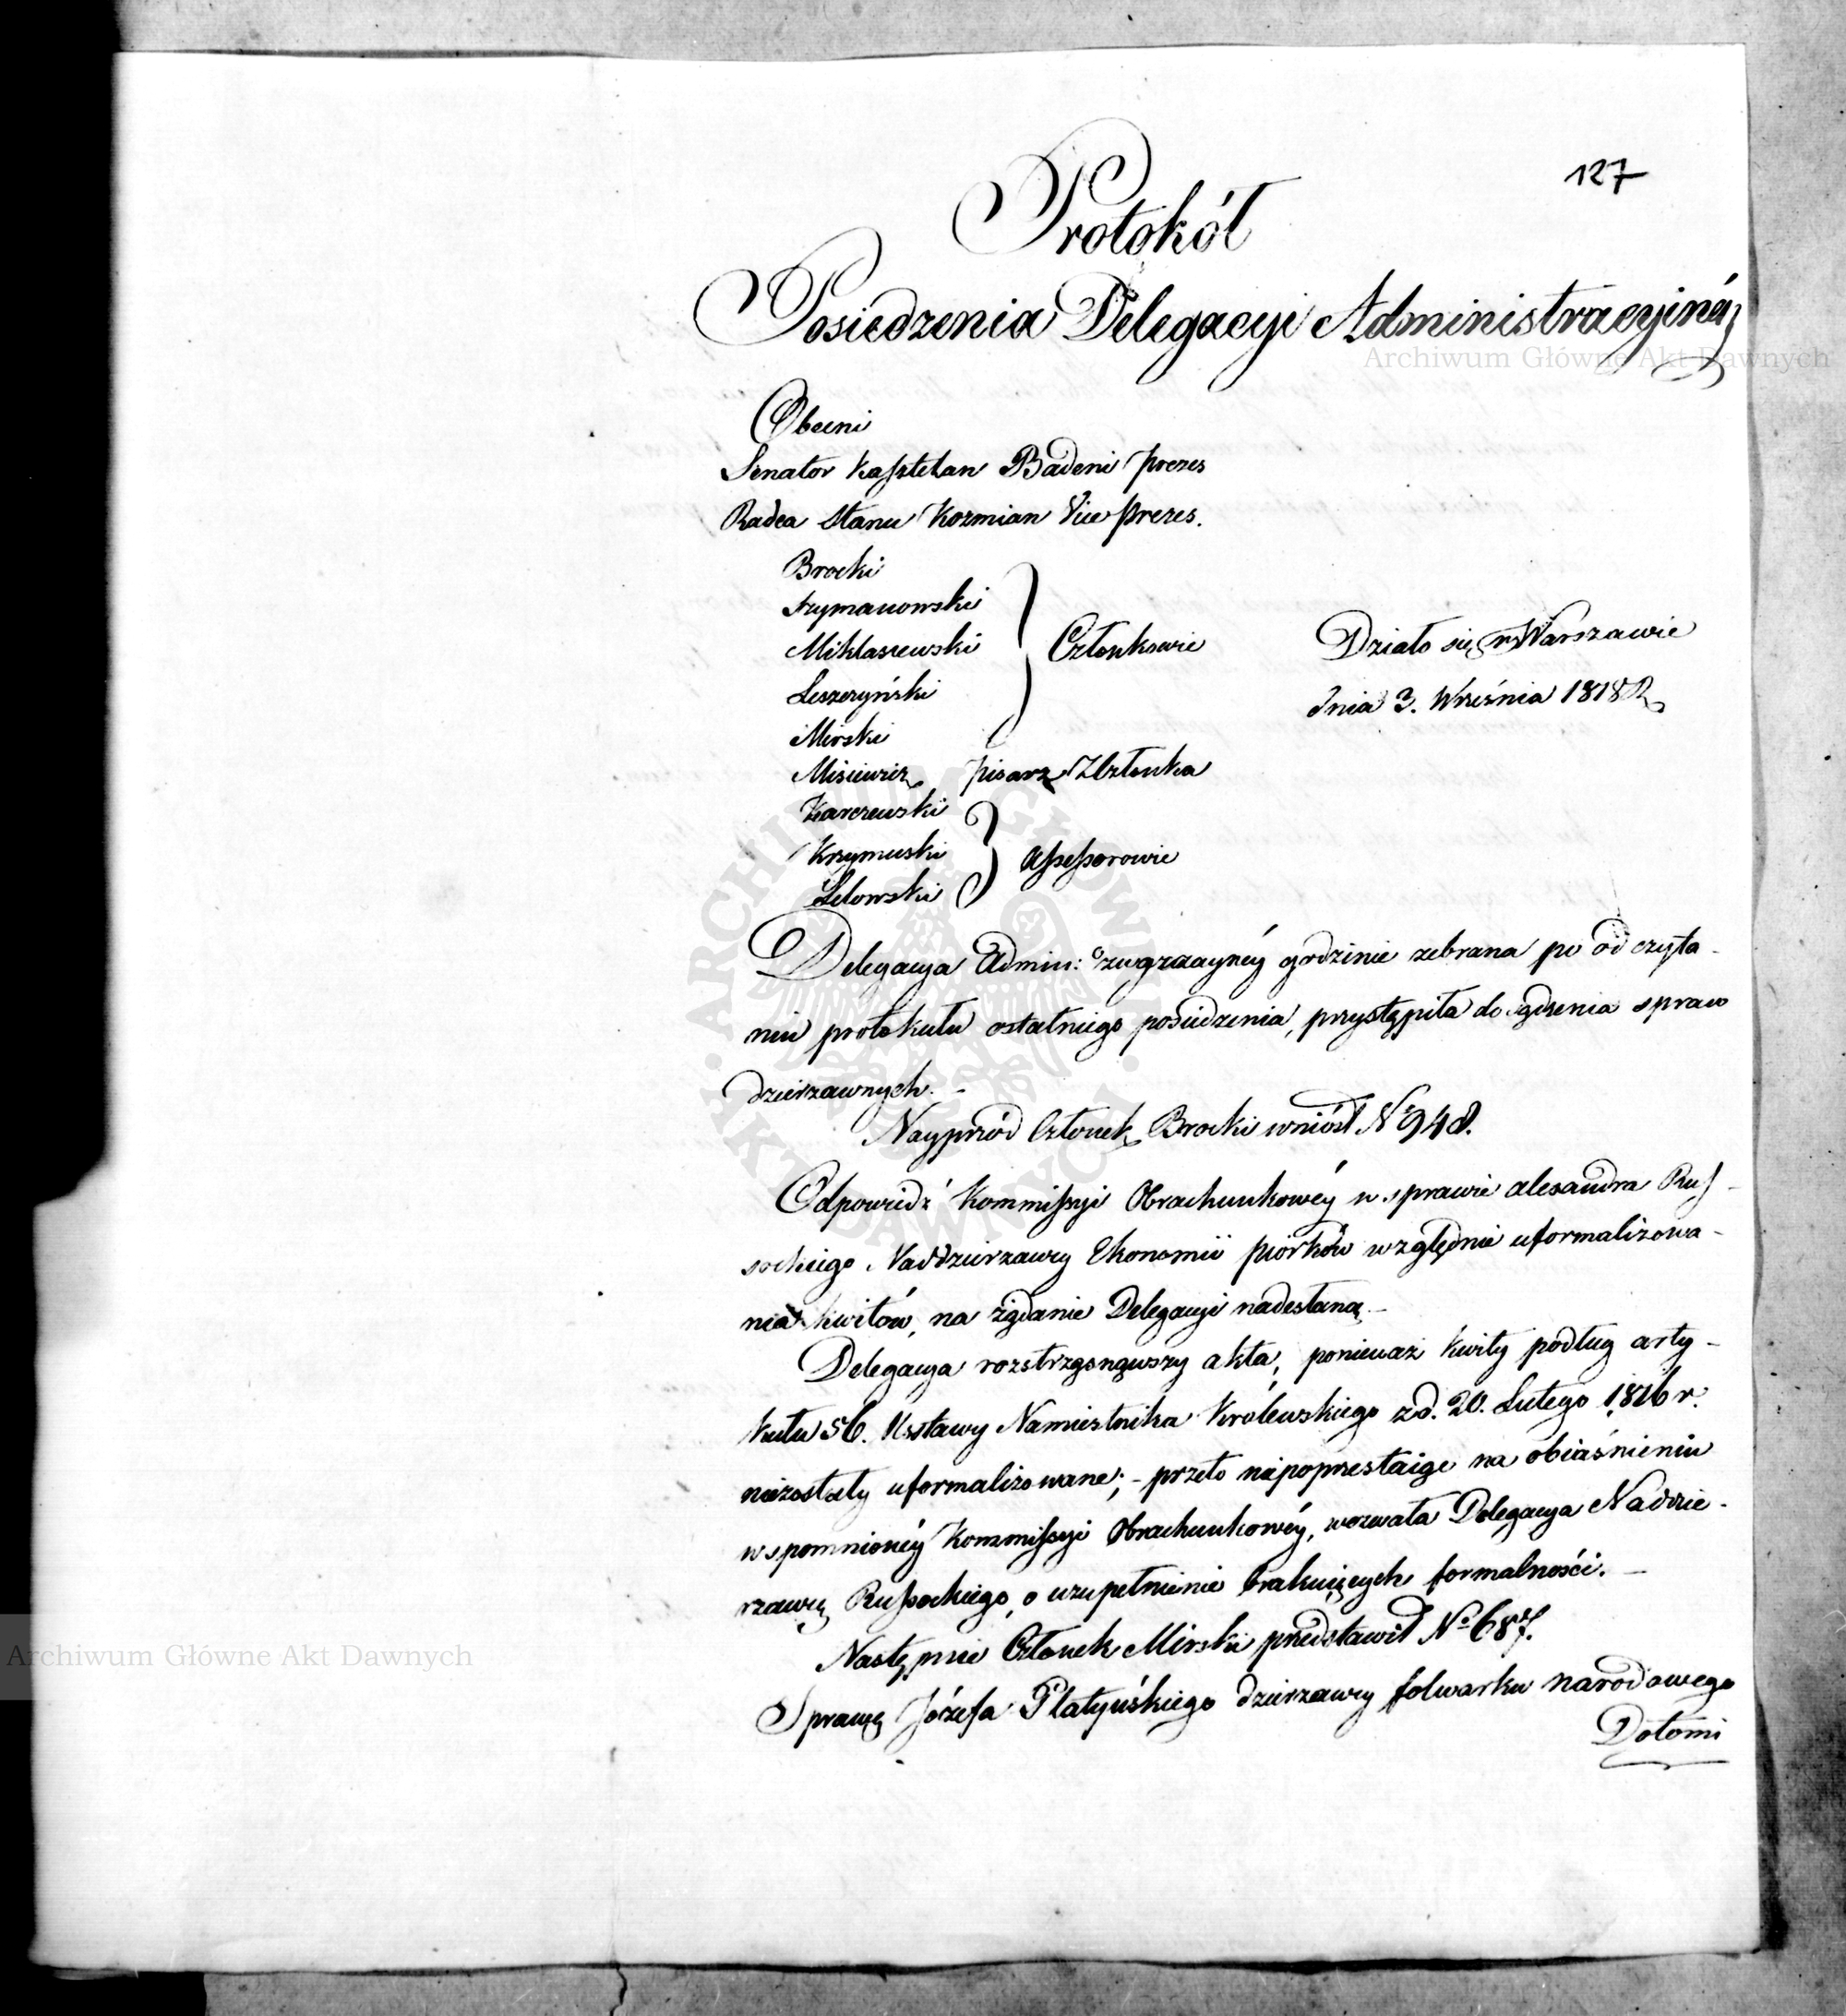 127
Protokół
Posiedzenia Delegacyi Administracyiney
Obecni
Senator Kasztelan Badeni Prezes
Radca Stanu Kozmian Vice Prezes.
Brocki
Szymanowski
Miklaszewski
Członkowie
Działo się w Warszawie
Leszczyński
dnia 3. Września 1818 R
Mirski
Misiewicz Pisarz Członka
Karczewski
Krzymuski
Assessorowie
Lelowski
Delegacya Admin: o zwyczayney godzinie zebrana po odczyta-
niu protokułu ostatniego posiedzenia, przystąpiła do sądzenia spraw
dzierzawnych. -
Nayprzód Członek Brocki wniósł No 948.
Odpowiedź Kommissyi Obrachunkowéy w sprawie alexandra Rus-
sockiego Naddzierzawcy Ekonomii Piorków względnie uformalizowa-
nia kwitów, na żądanie Delegacyi nadesłaną -
Delegacya roztrząsnąwszy akta, ponieważ kwity podług arty-
kułu 56. Ustawy Namiestnika Królewskiego z d. 20. Lutego 1816 r.
niezostały uformalizowane; - przeto niepoprzestaiąc na obiaśnieniu
wspomnionéy Kommissyi Obrachunkowéy, wezwała Delegacya Naddzie-
rzawcę Russockiego, o uzupełnienie brakuiących formalności. -
Następnie Członek Mirski przedstawił No 687.
Sprawę Józefa Platyńskiego dzierzawcy folwarku narodowego
Dołomi
Archiwum Główne Akt Dawnych
Archiwum Główne Akt Dawnych
ARCHIWUM GŁÓWNE AKT DAWNYCH